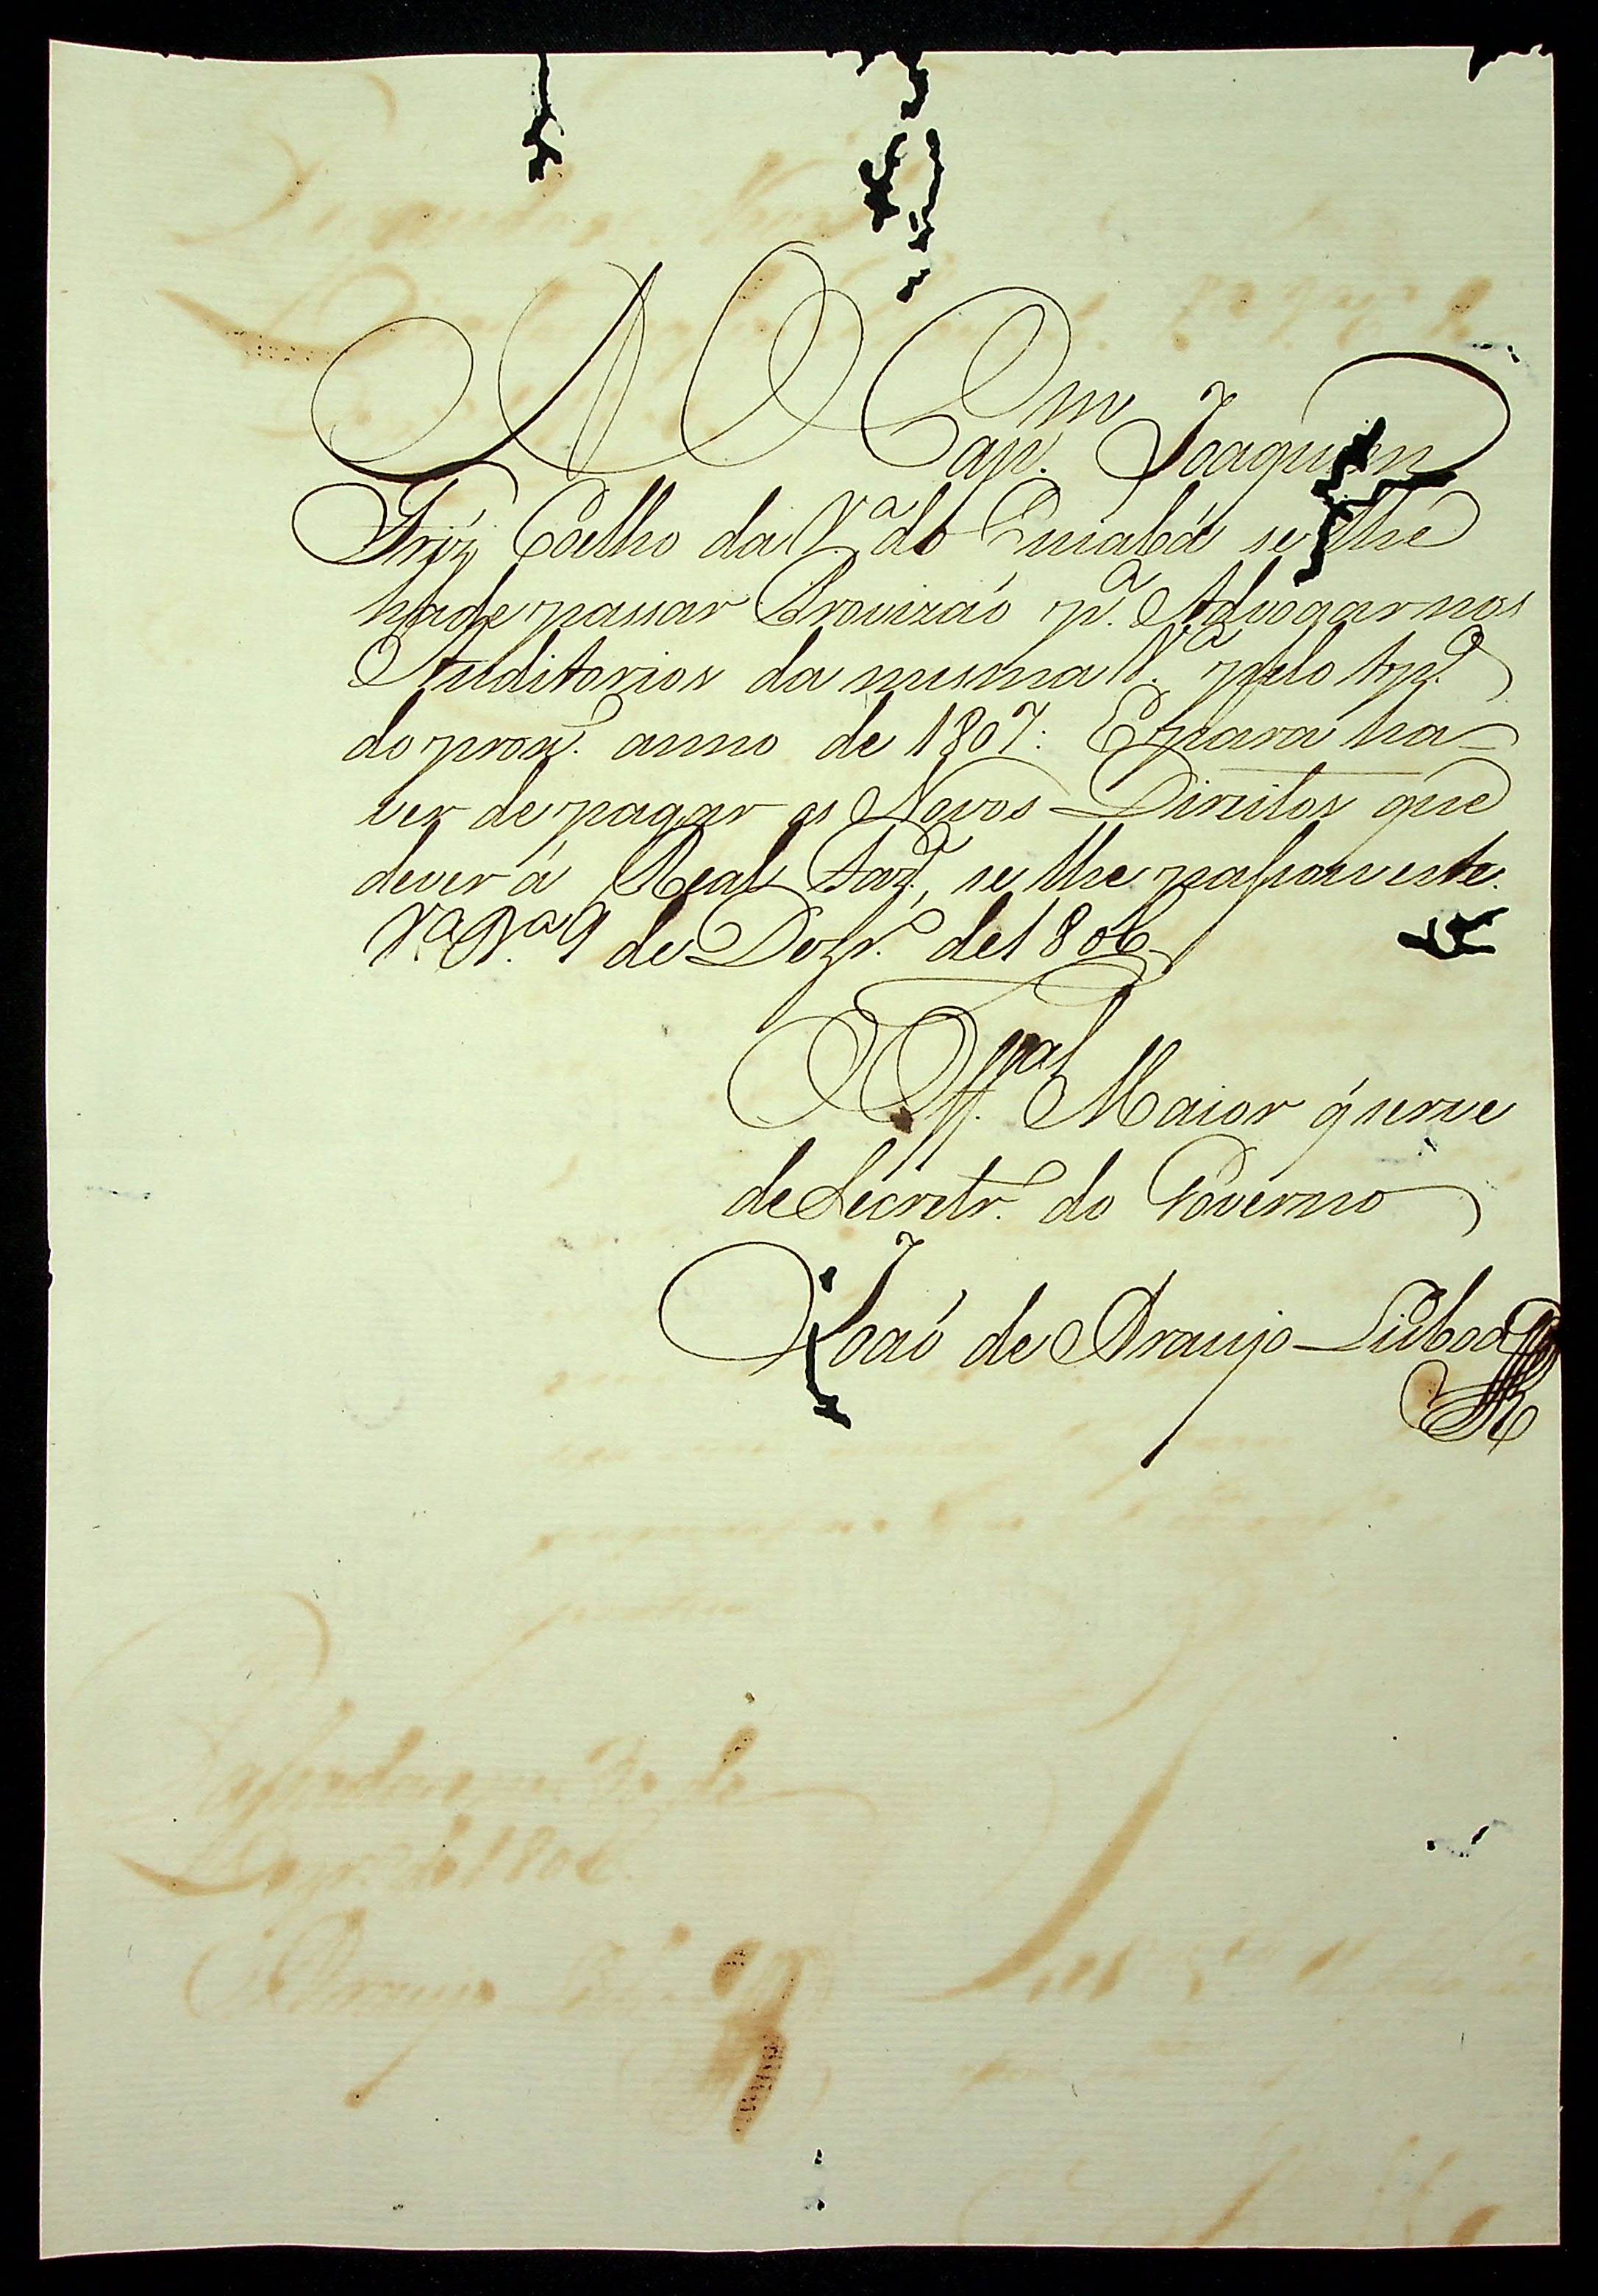 Ao Cap.m Joaquim
Frz Coelho da V.a do Cuiabá se lhe
hade passar Provizaõ p.a Advogar nos
Auditorios da mesma V.a pelo tp.o
do prox.o anno de 1807: E para ha-
ver de pagar os Novos Direitos que
dever á Real Faz.a, se lhe passou este.
V.a B.a 9 de Dezr.o de 1806
O Off.al Maior q̃ serve
de Secretr.o do Governo
Joaõ de Araujo Lisboa